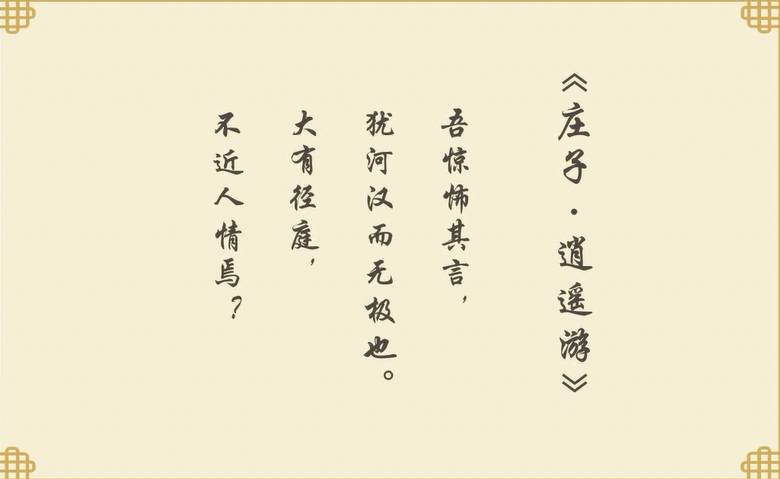 《庄子·逍遥游》
吾惊怖其言，
犹河汉而无极也。
大有径庭，
不近人情焉？